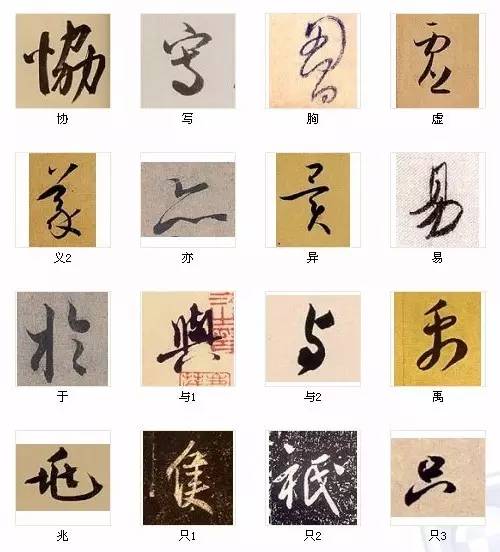 協 写 胷 虚
协 写 胸 虚
義 亦 異 易
义2 亦 异 易
於 與 与 禹
于 与1 与2 禹
兆 隻 祇 只
兆 只1 只2 只3